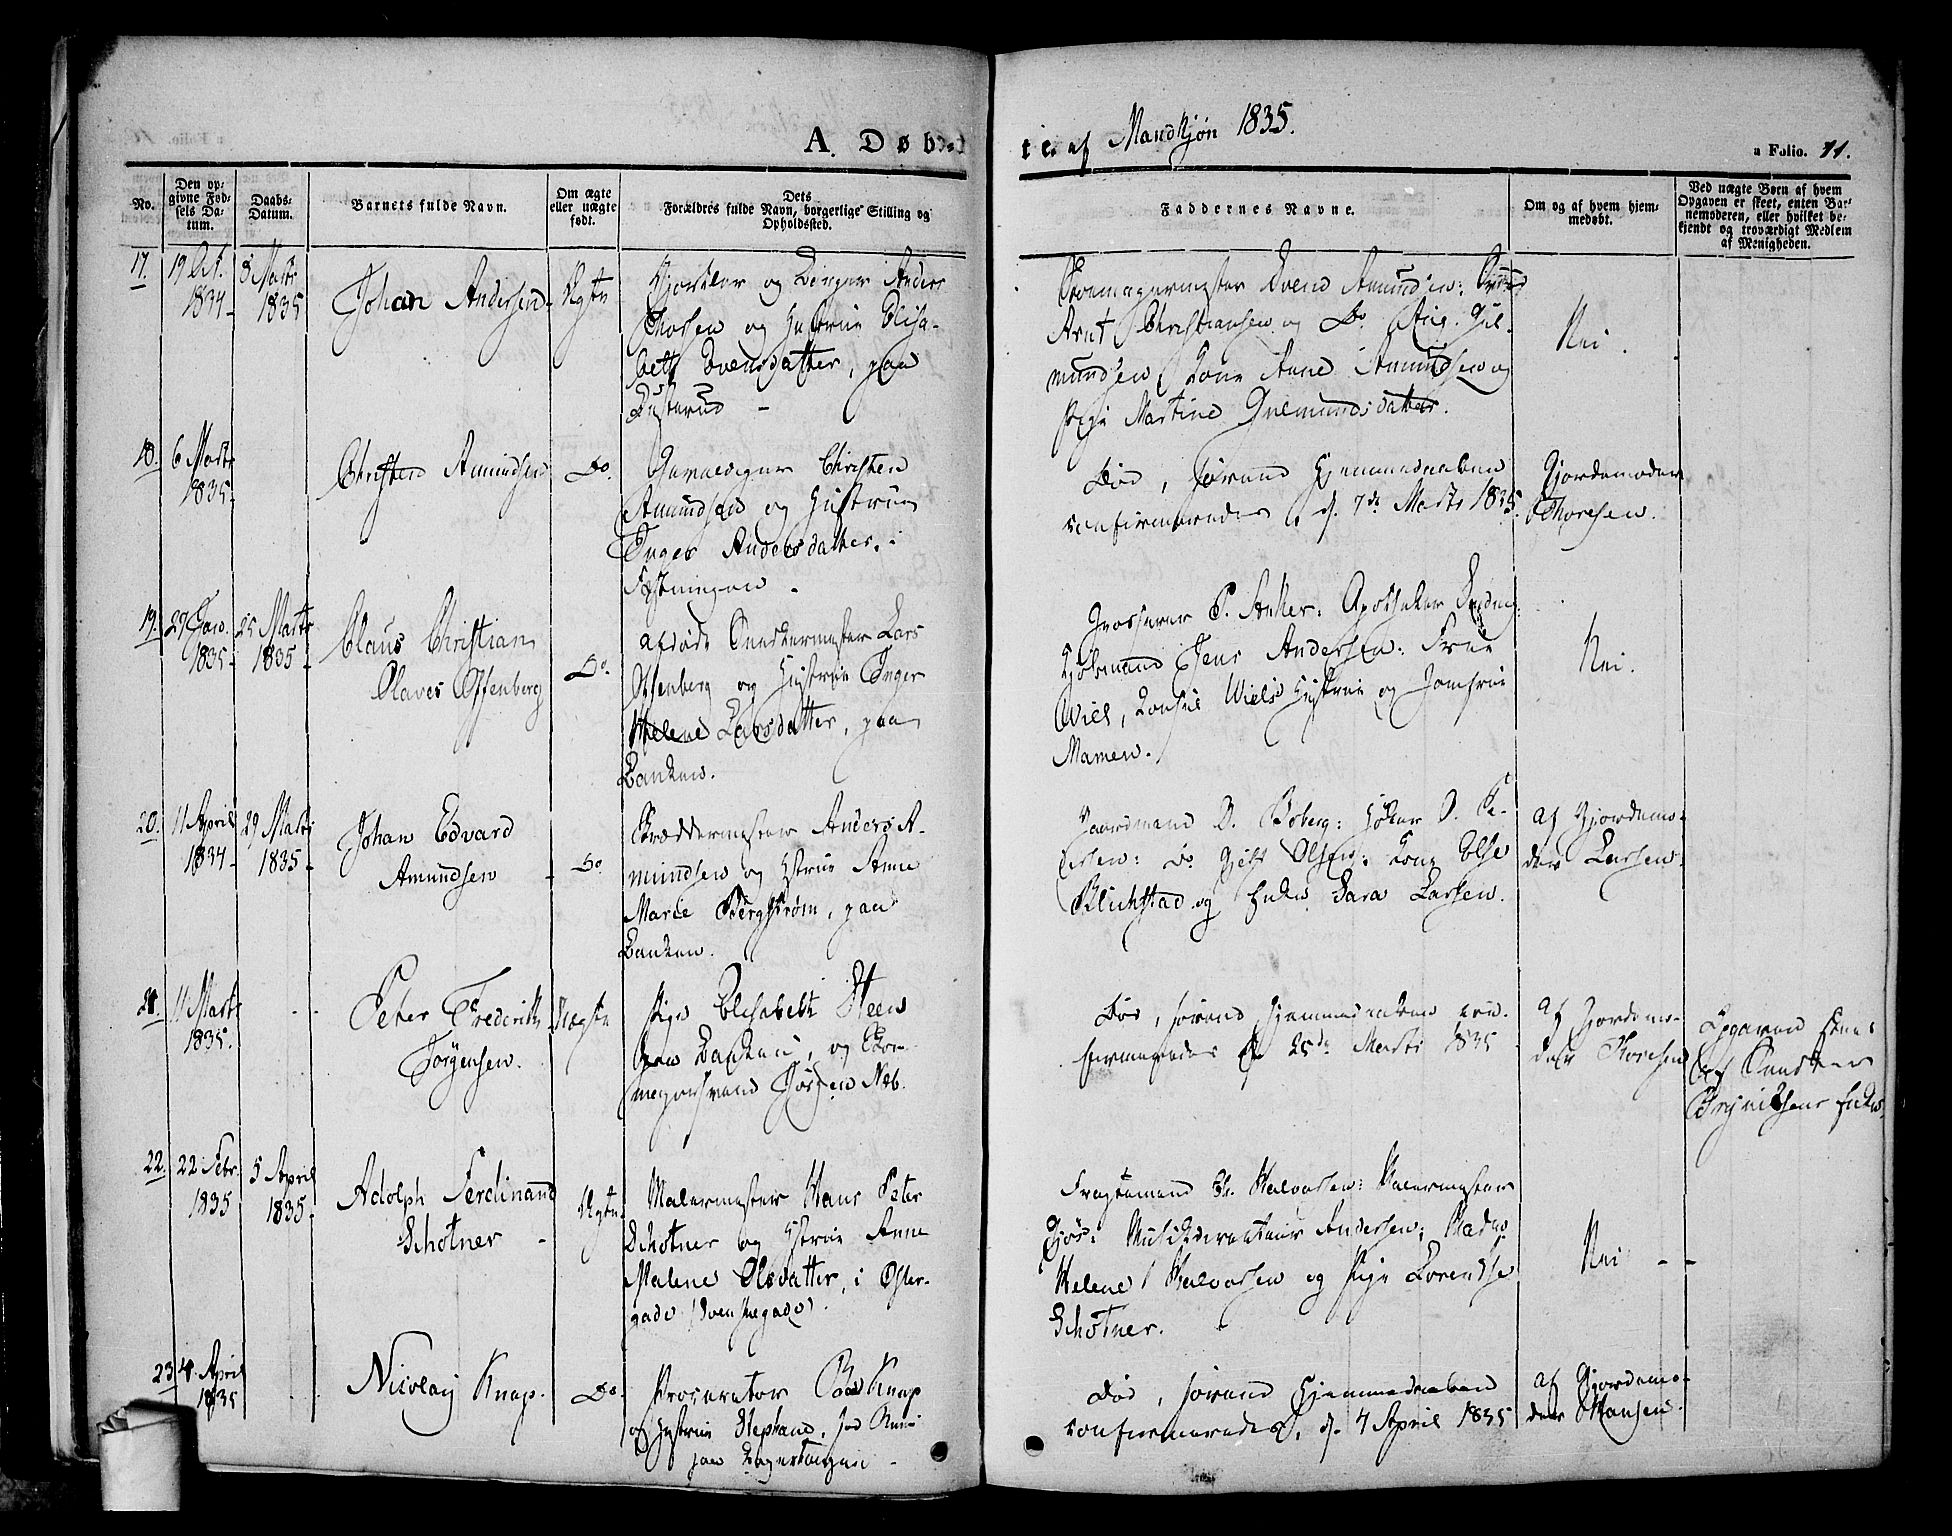 A. Døbte af Mandkjøn 1835.
a Folio. 11.
No.
Den op-
givne Fød-
sels Da-
tum.
Daabs-
Datum.
Barnets fulde Navn.
Om ægte
eller uægte
født.
Dets
Forældres fulde Navn, borgerlige Stilling og
Opholdssted.
Faddernes Navne.
Om og af hvem hjem-
medøbt.
Ved uægte Børn af hvem
Opgaven er skeet, enten Bar-
nemoderen, eller hvilket be-
kjendt og troværdigt Medlem
af Menigheden.
17.
19 Oct.
1834
8 Marts
1835
Johan Andersen
Ægte
og Borger Anders
Thorsen og Hustrue Elisa-
beth Svensdatter, paa
Damagermester Svend Amundsen:
Arnt Christiansen og Do
mundsen, Kone Anne Amundsen og
Pige Martine Gulmundsdatter.
Nei.
18.
6 Marts
1835
Christen Amundsen
Do.
Christen
Amundsen og Hustrue
Inger Andersdatter, i
Fæstningen.
Død, førend Hjemmedaaben
confirmeredes, d. 7de Marts 1835.
Gjordemoder
Thoresen.
19.
27 Jan.
1835
25 Marts
1835
Claus Christian
Olaves Offenberg
Do.
Afdøde Snedkermester Lars
Offenberg og Hustrue Inger
Helene Larsdatter, paa
Banken.
Grosserer P. Anker: Apotheker
Kjøbmand Jens Andersen: Frue
Wiel, Consul Wiels Hustrue og Jomfrue
Mamen.
Nei.
20.
11 April
1834
29 Marts
1835
Johan Edvard
Amundsen
Do
Anders A-
mundsen og Hstrue Anne
Marie Bergstrøm, paa
Banken.
Gaardmand D. Boberg: Høker
Do Olsen: Kone Else
Blichstad og Enke Sara Larsen.
af Gjordemo-
der Larsen.
21.
11 Marts
1835.
Peter Frederik
Jørgensen.
Uægte
Pige Elisabeth Steen
paa Banken, og Bom-
Jørgen Neb.
Død, førend Hjemmedaaben con-
firmeredes d. 25de Marts 1835
af Gjordemo-
der Thoresen
Opgaven skeet
af Snedker
Enke.
22.
22 Febr.
1835
5 April
1835
Adolph Ferdinand
Schotner
Ægte
Malermester Hans Peter
Schotner og Hstrue Anne
Malene Olsdatter, i Øster-
gade (Svenskegade).
Fragtemand Halvorsen: Malermester
Gjøs: Musikdirecteur Andersen: Madm.
Helene Halvorsen og Pige Lorendse
Schotner.
Nei
23
4 April
1835
Nicolay Knap.
Do.
Procurator Knap
og Hustrue Stephane, fød
paa
Død, førend Hjemmedaaben
confirmeredes, d. 4 April 1835
af Gjordemo-
der Hansen.